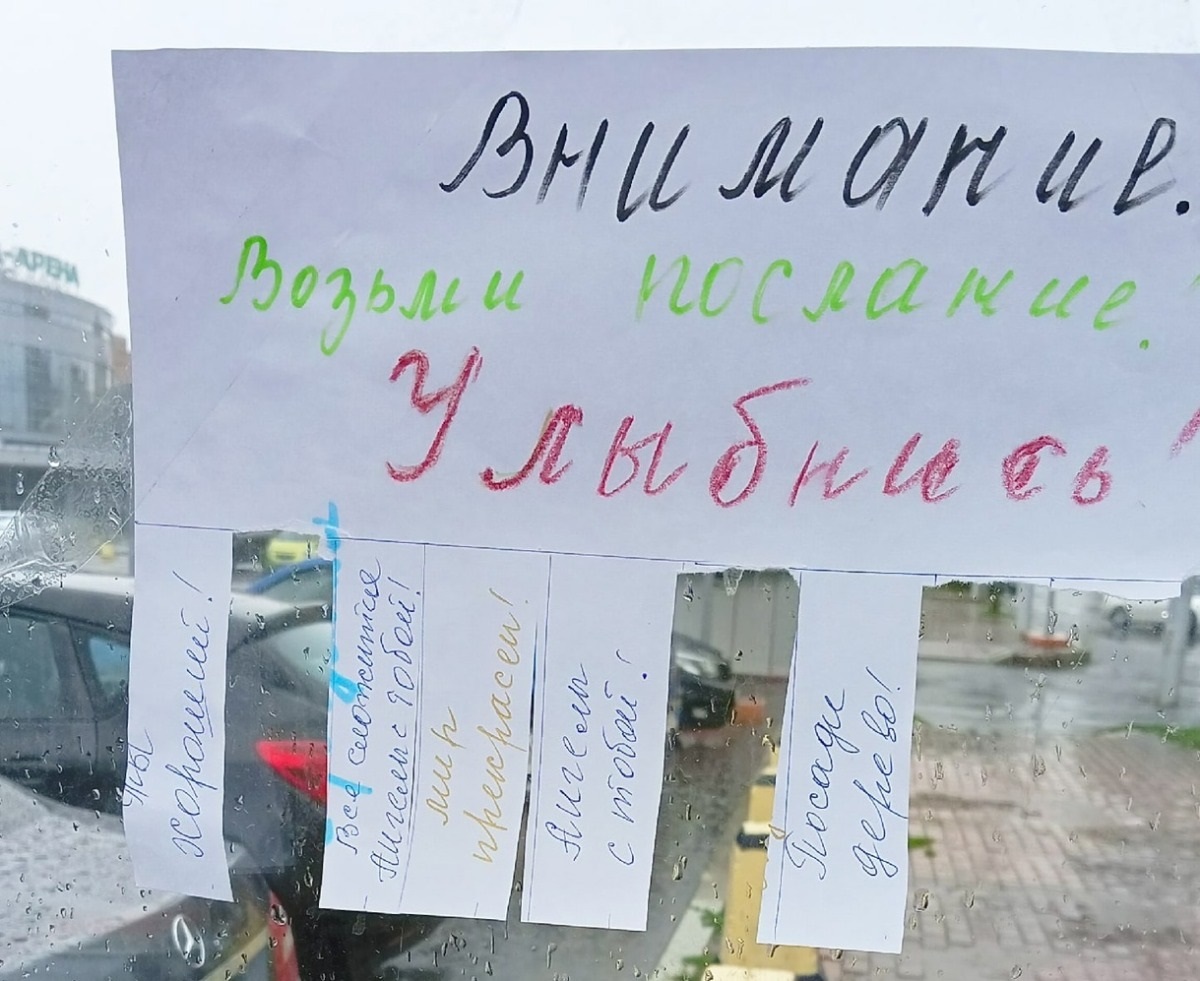 Внимание.
Возьми послание!
Улыбнись!
-АРЕНА
Ты
хороший!
Все сложится
Ангелы с тобой!
мир
прекрасен!
Ангелы
с тобой!
Посади
дерево!